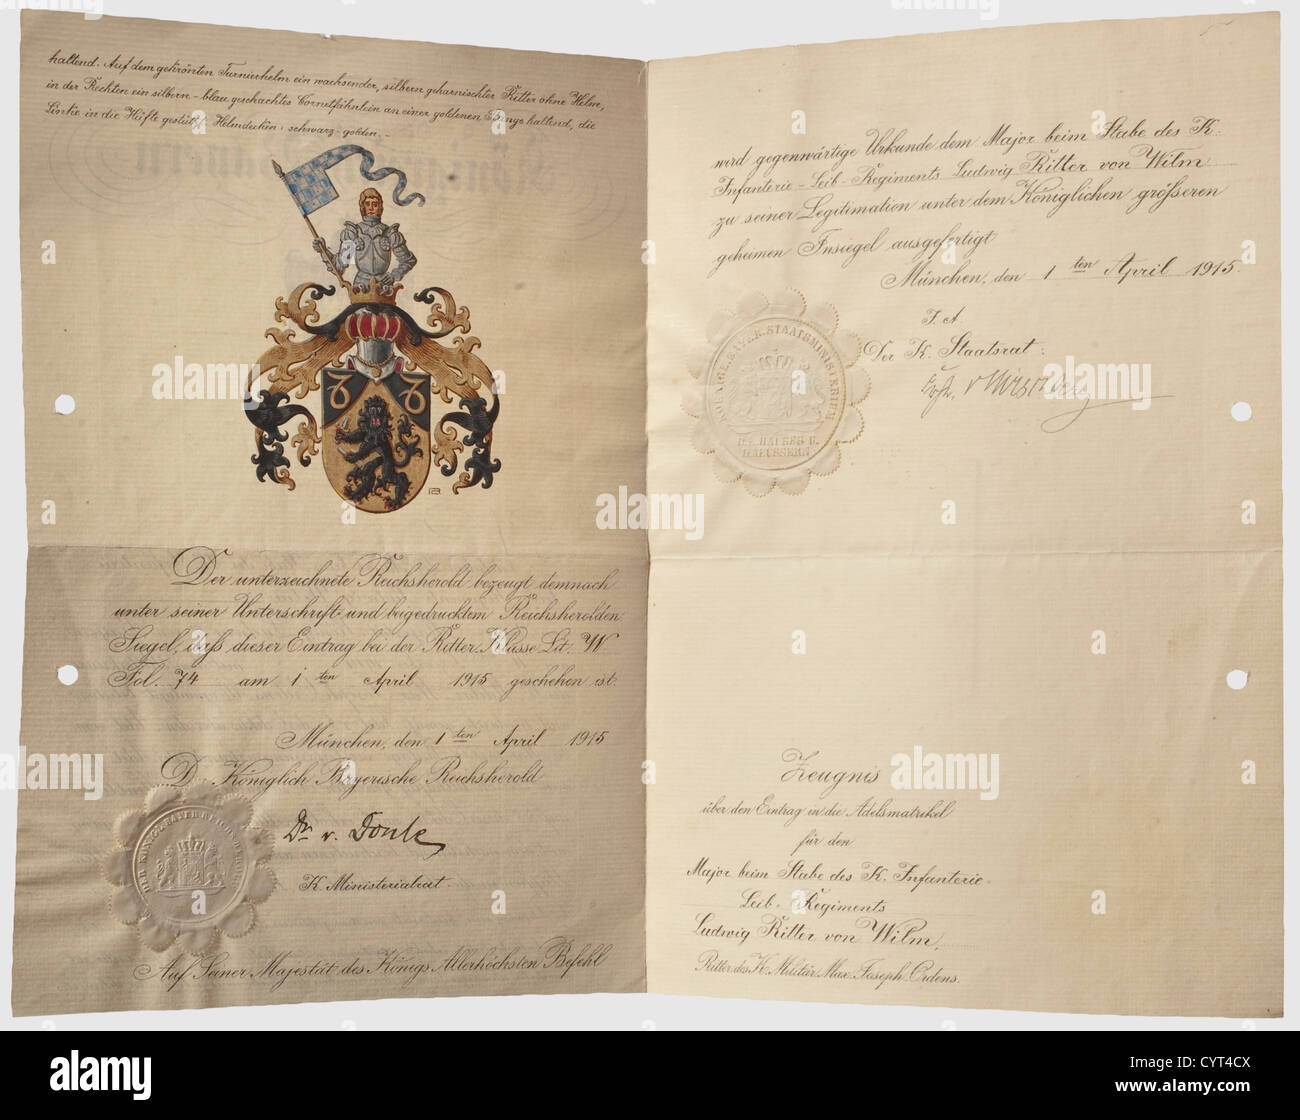 haltend. Auf dem gekrönten Turnierhelm ein wachsender, silbern geharnischter Ritter ohne Helm,
in der Rechten ein silbern-blau geschachtes Cornetfähnlein an einer goldenen Stange haltend, die
Linke in die Hüfte gestützt. Helmdecken: schwarz-golden.
Der unterzeichnete Reichsherold bezeugt demnach
unter seiner Unterschrift und beigedrucktem Reichsherolden
Siegel, daß dieser Eintrag bei der Ritter Klasse Lit. W
Fol. 74 am 1ten April 1915 geschehen ist.
München, den 1ten April 1915
D Königlich Bayerische Reichsherold
Dr. v.
K. Ministerialrat
Auf Seiner Majestät des Königs Allerhöchsten Befehl
wird gegenwärtige Urkunde dem Major beim Stabe des K.
Infanterie-Leib-Regiments Ludwig Ritter von Wilm
zu seiner Legitimation unter dem Königlichen grösseren
geheimen Insiegel ausgefertigt
München, den 1ten April 1915.
I. A.
Der K. Staatsrat:
KOENIGL. BAYER. STAATSMINISTERIUM
D. K. HAUSES U.
D. AEUSSERN
Zeugnis
über den Eintrag in die Adelsmatrikel
für den
Major beim Stabe des K. Infanterie-
Leib-Regiments
Ludwig Ritter von Wilm,
Ritter des K. Militär Max Joseph Ordens.
alamy
Image ID: CYT4CX
www.alamy.com